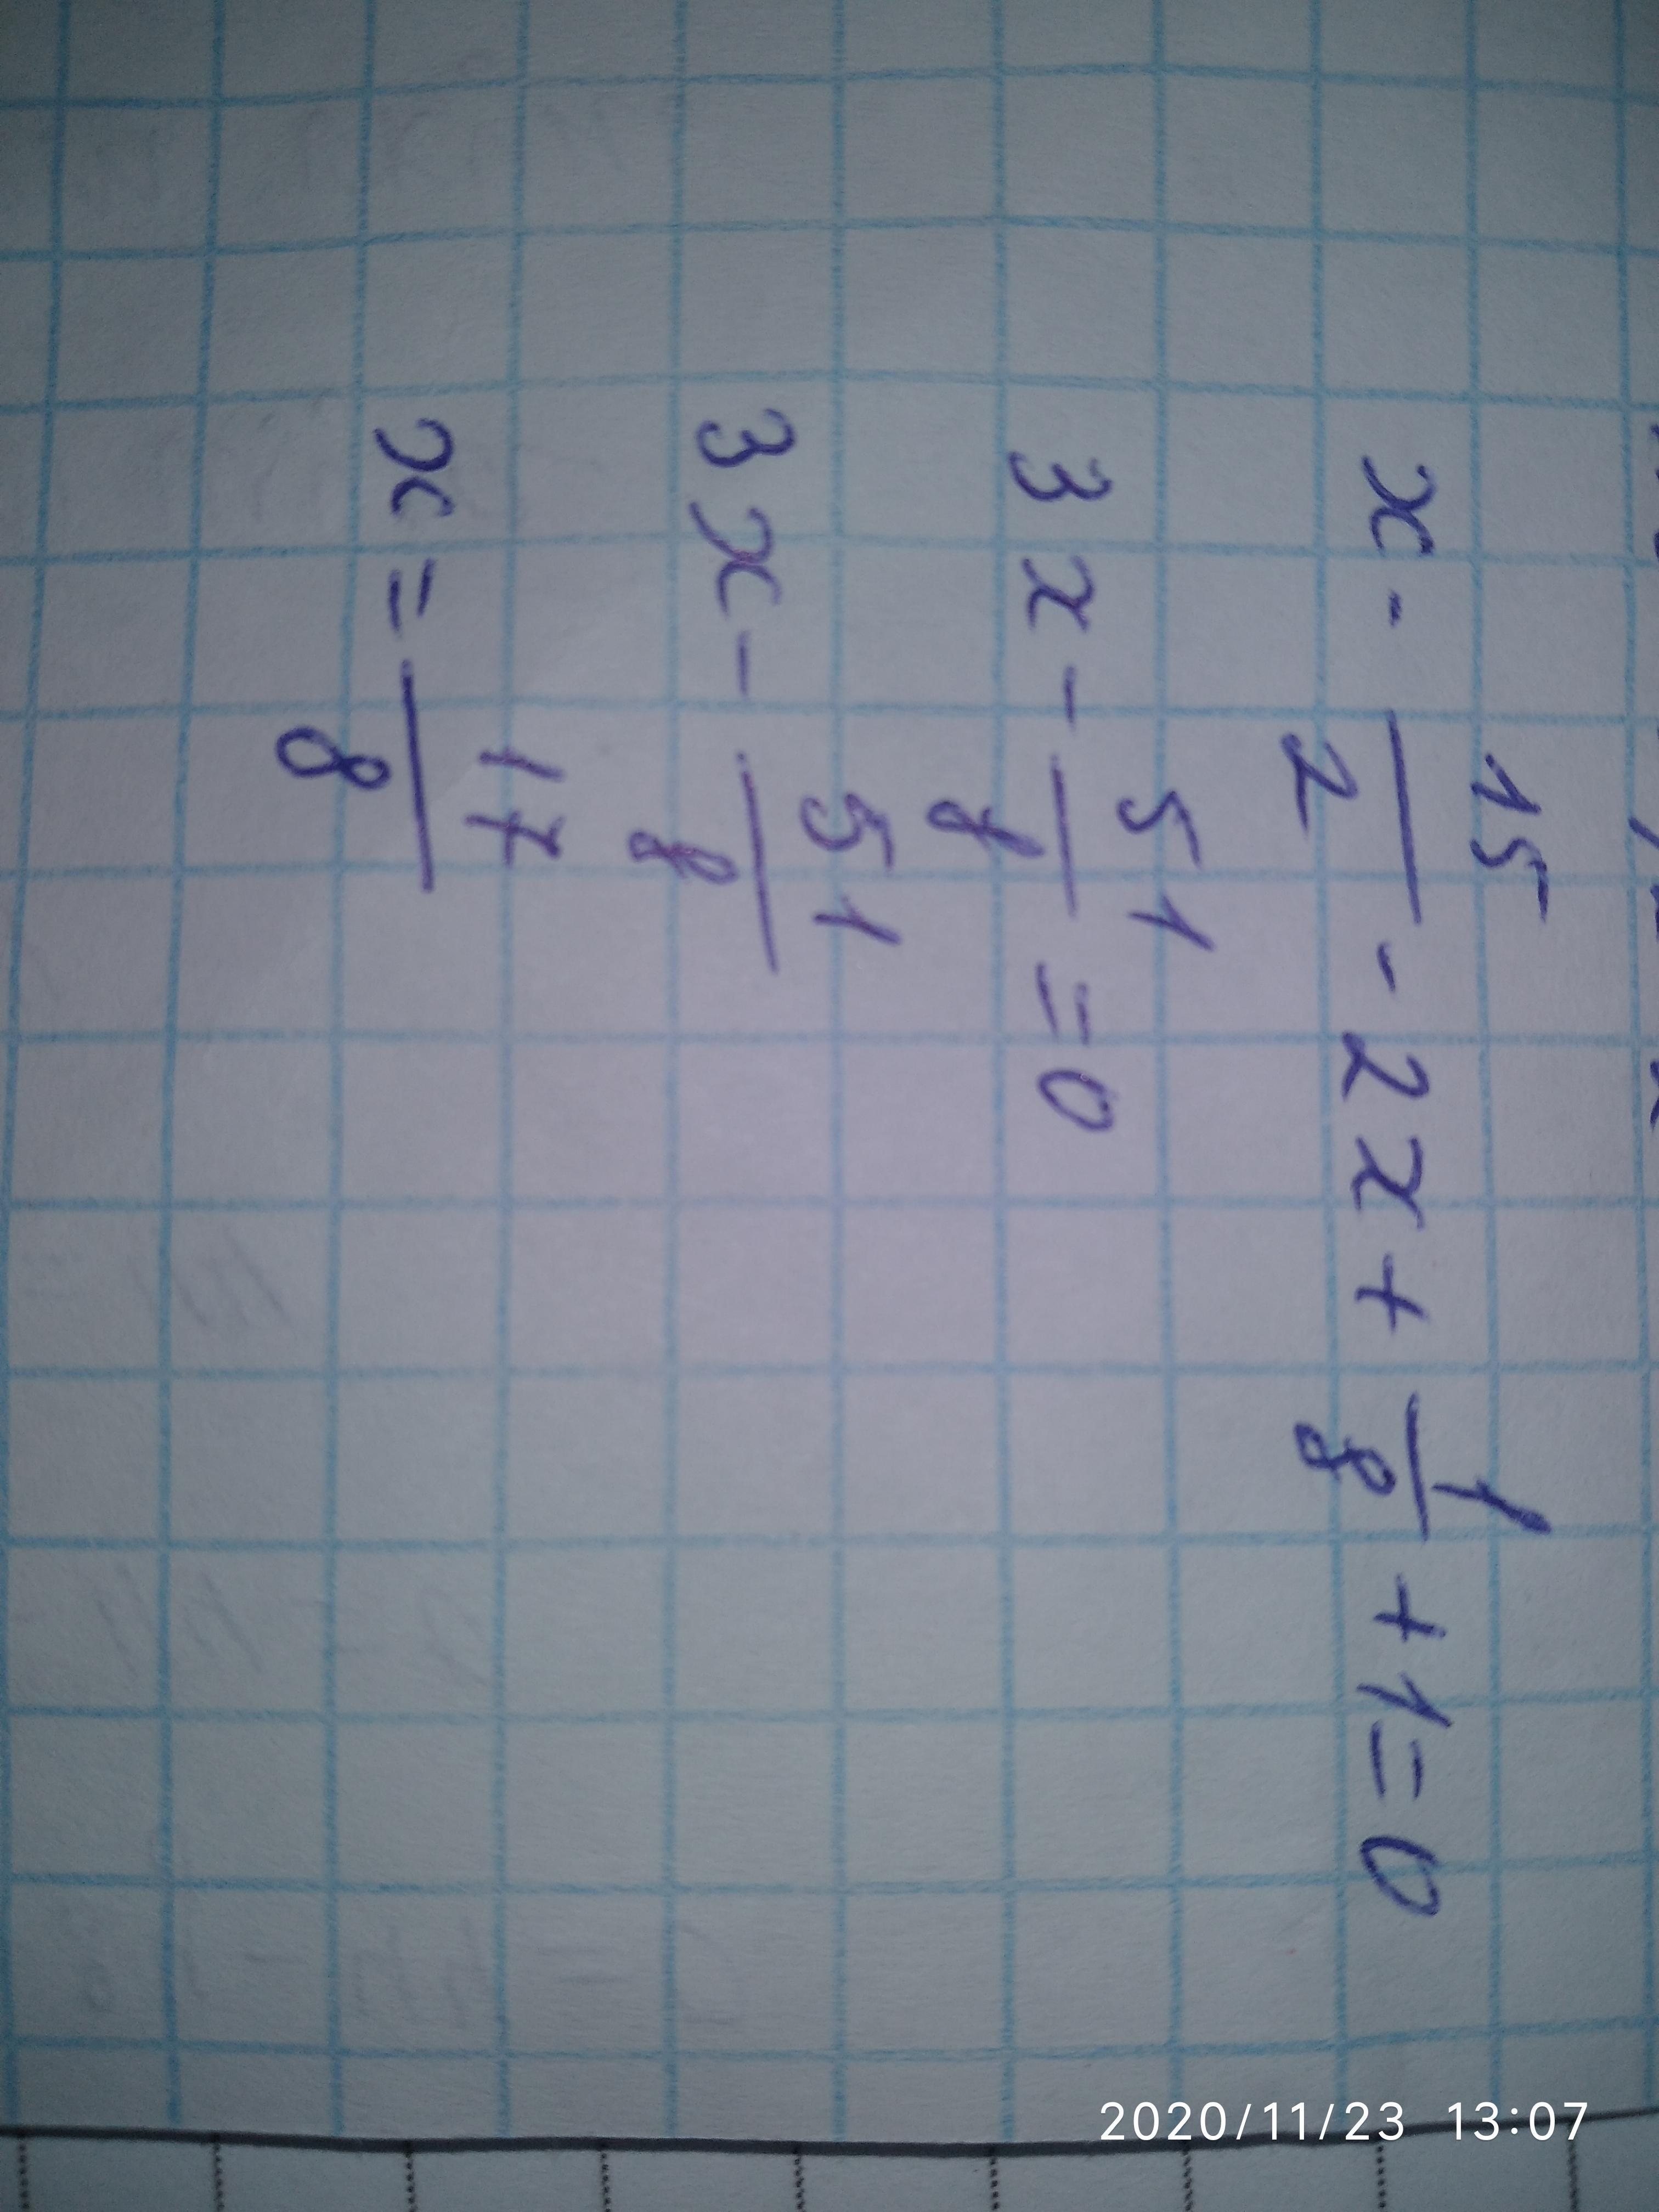 x - 15/2 - 2x + 1/8 + 1 = 0
3x - 51/8 = 0
3x - 51/8
x = 17/8
2020/11/23 13:07